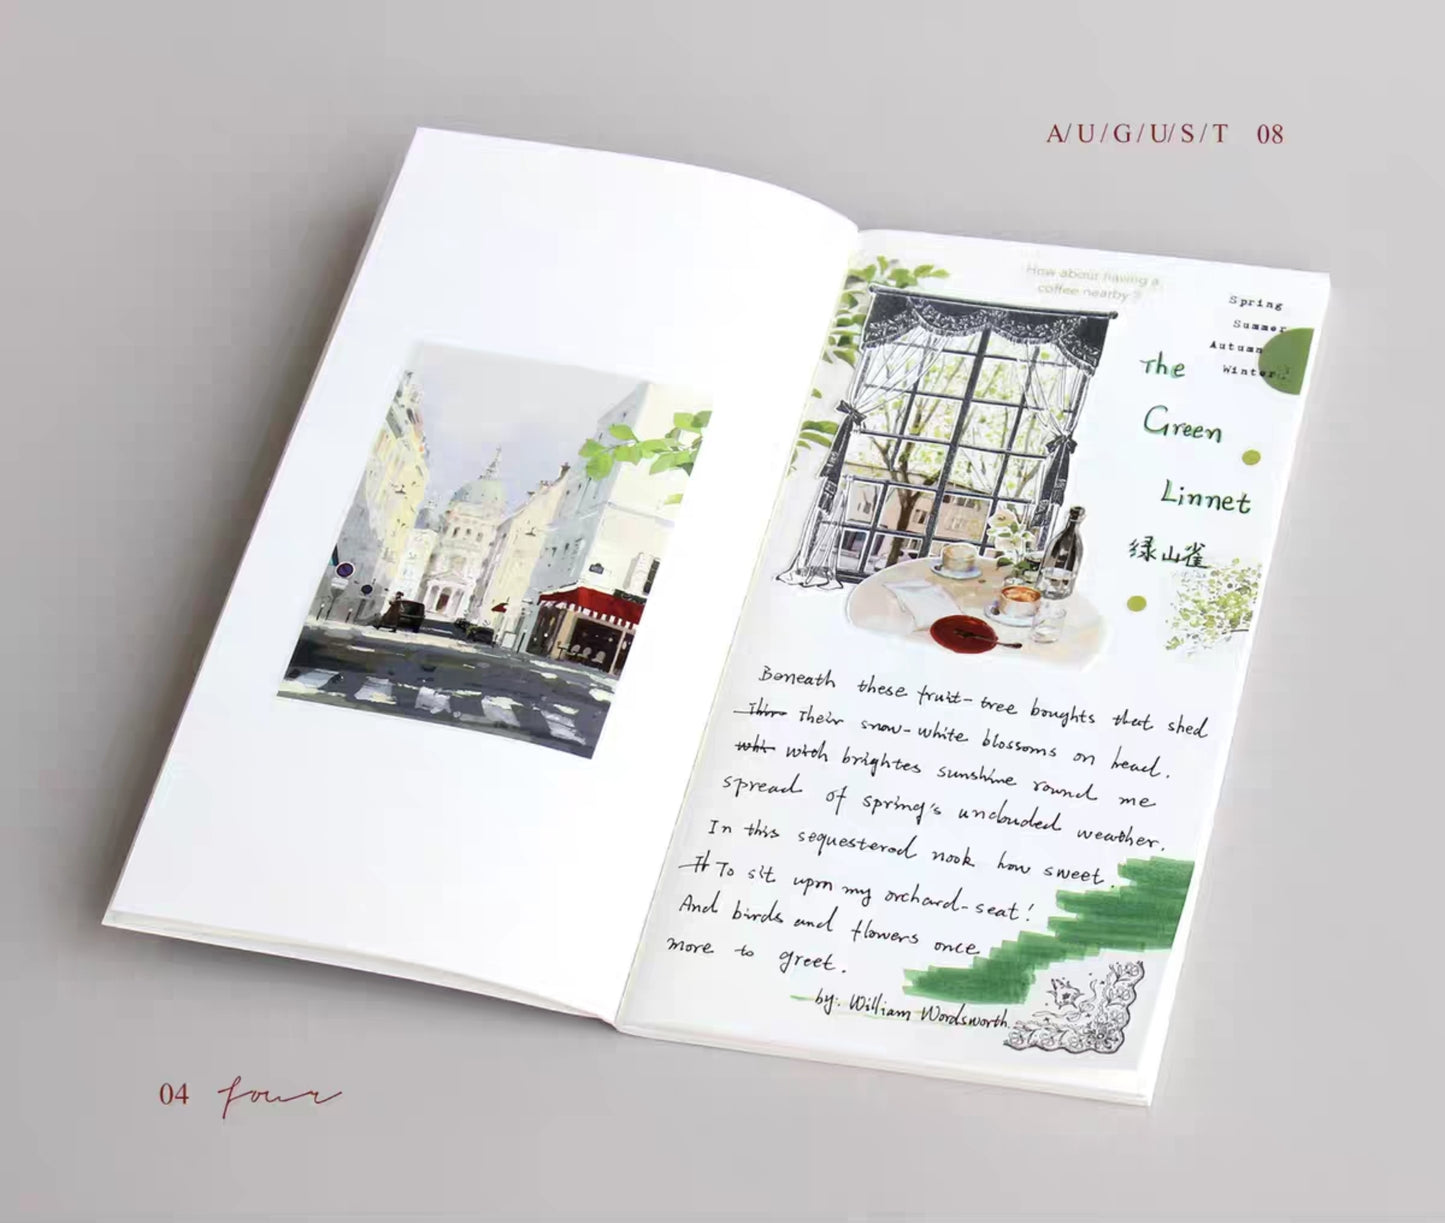 A/U/G/U/S/T 08
How about having a
coffee nearby?
Spring
Summer
Autumn
Winter
The
Green
Linnet
绿山雀
Beneath these fruit-tree boughts that shed
Their Their snow-white blossoms on head.
whi with brightes sunshine round me
spread of spring's unclouded weather.
In this sequestered nook how sweet.
It To sit upon my orchard-seat!
And birds and flowers once
more to greet.
by: William Wordsworth
04 four